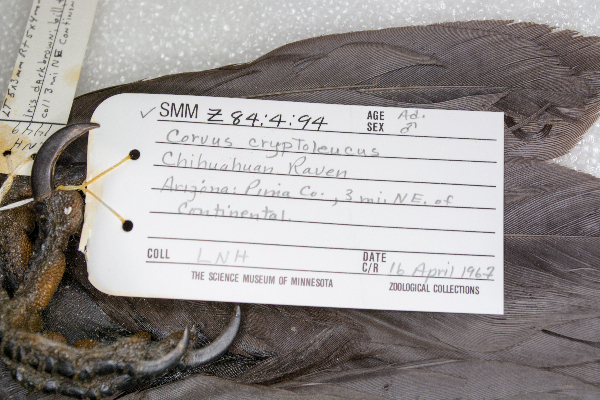 ✓ SMM Z 84:4:94 AGE Ad.
SEX ♂
Corvus cryptoleucus
Chihuahuan Raven
Arizona: Pima Co., 3 mi. NE. of
Continental
COLL LNH DATE
C/R 16 April 1962
THE SCIENCE MUSEUM OF MINNESOTA ZOOLOGICAL COLLECTIONS
Iris dark brown; bill
coll 3 mi NE Continen